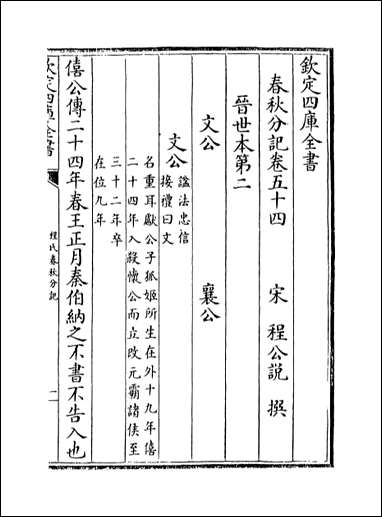 欽定四庫全書
春秋分記卷五十四　宋　程公說　撰
晉世本第二
文公　襄公
文公
諡法忠信
接禮曰文
名重耳獻公子狐姬所生在外十九年僖
二十四年入殺懷公而立改元霸諸侯至
三十二年卒
在位九年
僖公傳二十四年春王正月秦伯納之不書不告入也
欽定四庫全書
程氏春秋分記
一